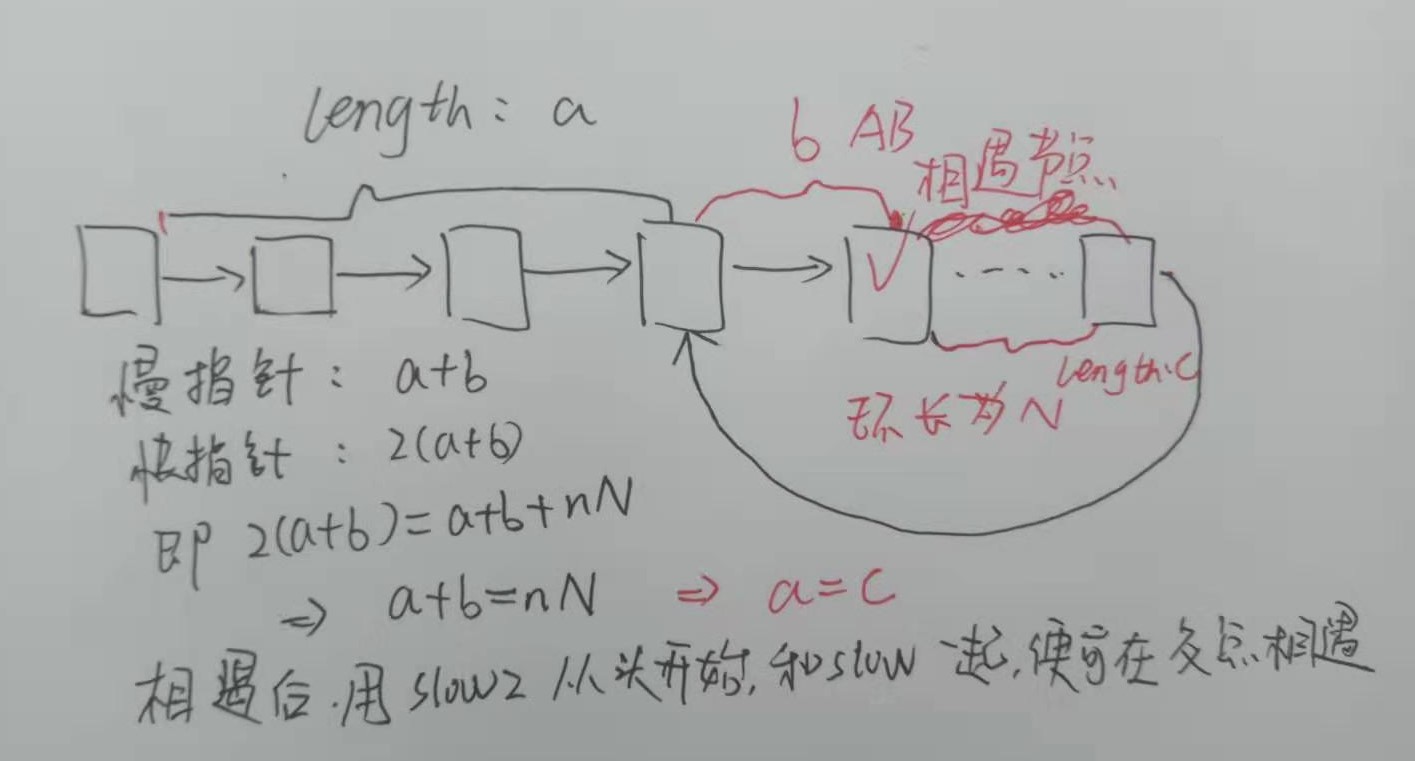 length: a
b AB
相遇节点
length:C
环长为N
慢指针: a+b
快指针: 2(a+b)
即 2(a+b)=a+b+nN
⇒ a+b=nN ⇒ a=C
相遇后.用slow2从头开始,和slow一起,便可在交点相遇